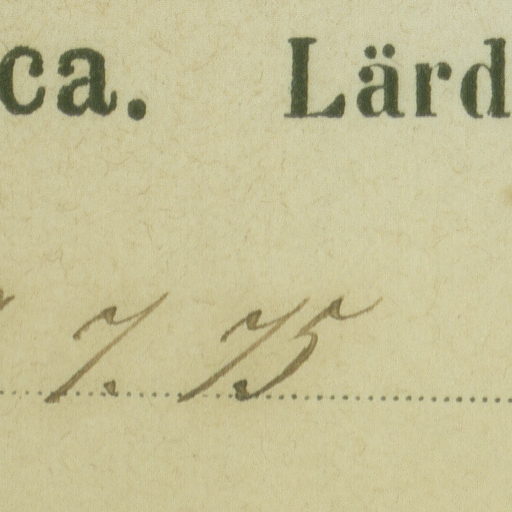 ca. Lärd
7. 75